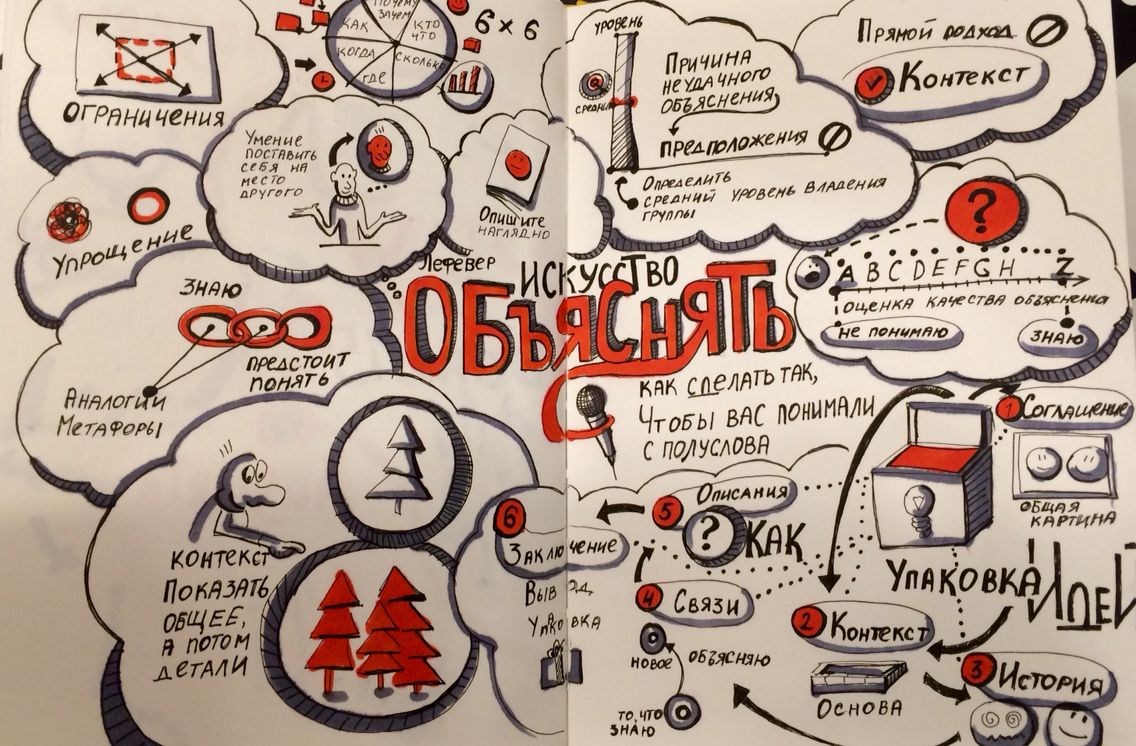 ПОЧЕМУ
ЗАЧЕМ
КТО
ЧТО
СКОЛЬКО
ГДЕ
КОГДА
КАК
6 × 6
ОГРАНИЧЕНИЯ
УМЕНИЕ
ПОСТАВИТЬ
СЕБЯ НА
МЕСТО
ДРУГОГО
ОПИШИТЕ
НАГЛЯДНО
УПРОЩЕНИЕ
ЗНАЮ
ПРЕДСТОИТ
ПОНЯТЬ
АНАЛОГИИ
МЕТАФОРЫ
КОНТЕКСТ
ПОКАЗАТЬ
ОБЩЕЕ,
А ПОТОМ
ДЕТАЛИ
ЛЕФЕВЕР
ИСКУССТВО
ОБЪЯСНЯТЬ
КАК СДЕЛАТЬ ТАК,
ЧТОБЫ ВАС ПОНИМАЛИ
С ПОЛУСЛОВА
УРОВЕНЬ
СРЕДНИЙ
ПРИЧИНА
НЕУДАЧНОГО
ОБЪЯСНЕНИЯ
ПРЕДПОЛОЖЕНИЯ
ОПРЕДЕЛИТЬ
СРЕДНИЙ УРОВЕНЬ ВЛАДЕНИЯ
ГРУППЫ
ПРЯМОЙ ПОДХОД
КОНТЕКСТ
?
A B C D E F G H Z
ОЦЕНКА КАЧЕСТВА ОБЪЯСНЕНИЯ
НЕ ПОНИМАЮ
ЗНАЮ
1 СОГЛАШЕНИЕ
ОБЩАЯ
КАРТИНА
УПАКОВКА ИДЕЙ
2 КОНТЕКСТ
ОСНОВА
3 ИСТОРИЯ
4 СВЯЗИ
НОВОЕ
ОБЪЯСНЯЮ
ТО, ЧТО
ЗНАЮ
5 ОПИСАНИЯ
? КАК
6
ЗАКЛЮЧЕНИЕ
ВЫВОД,
УПАКОВКА